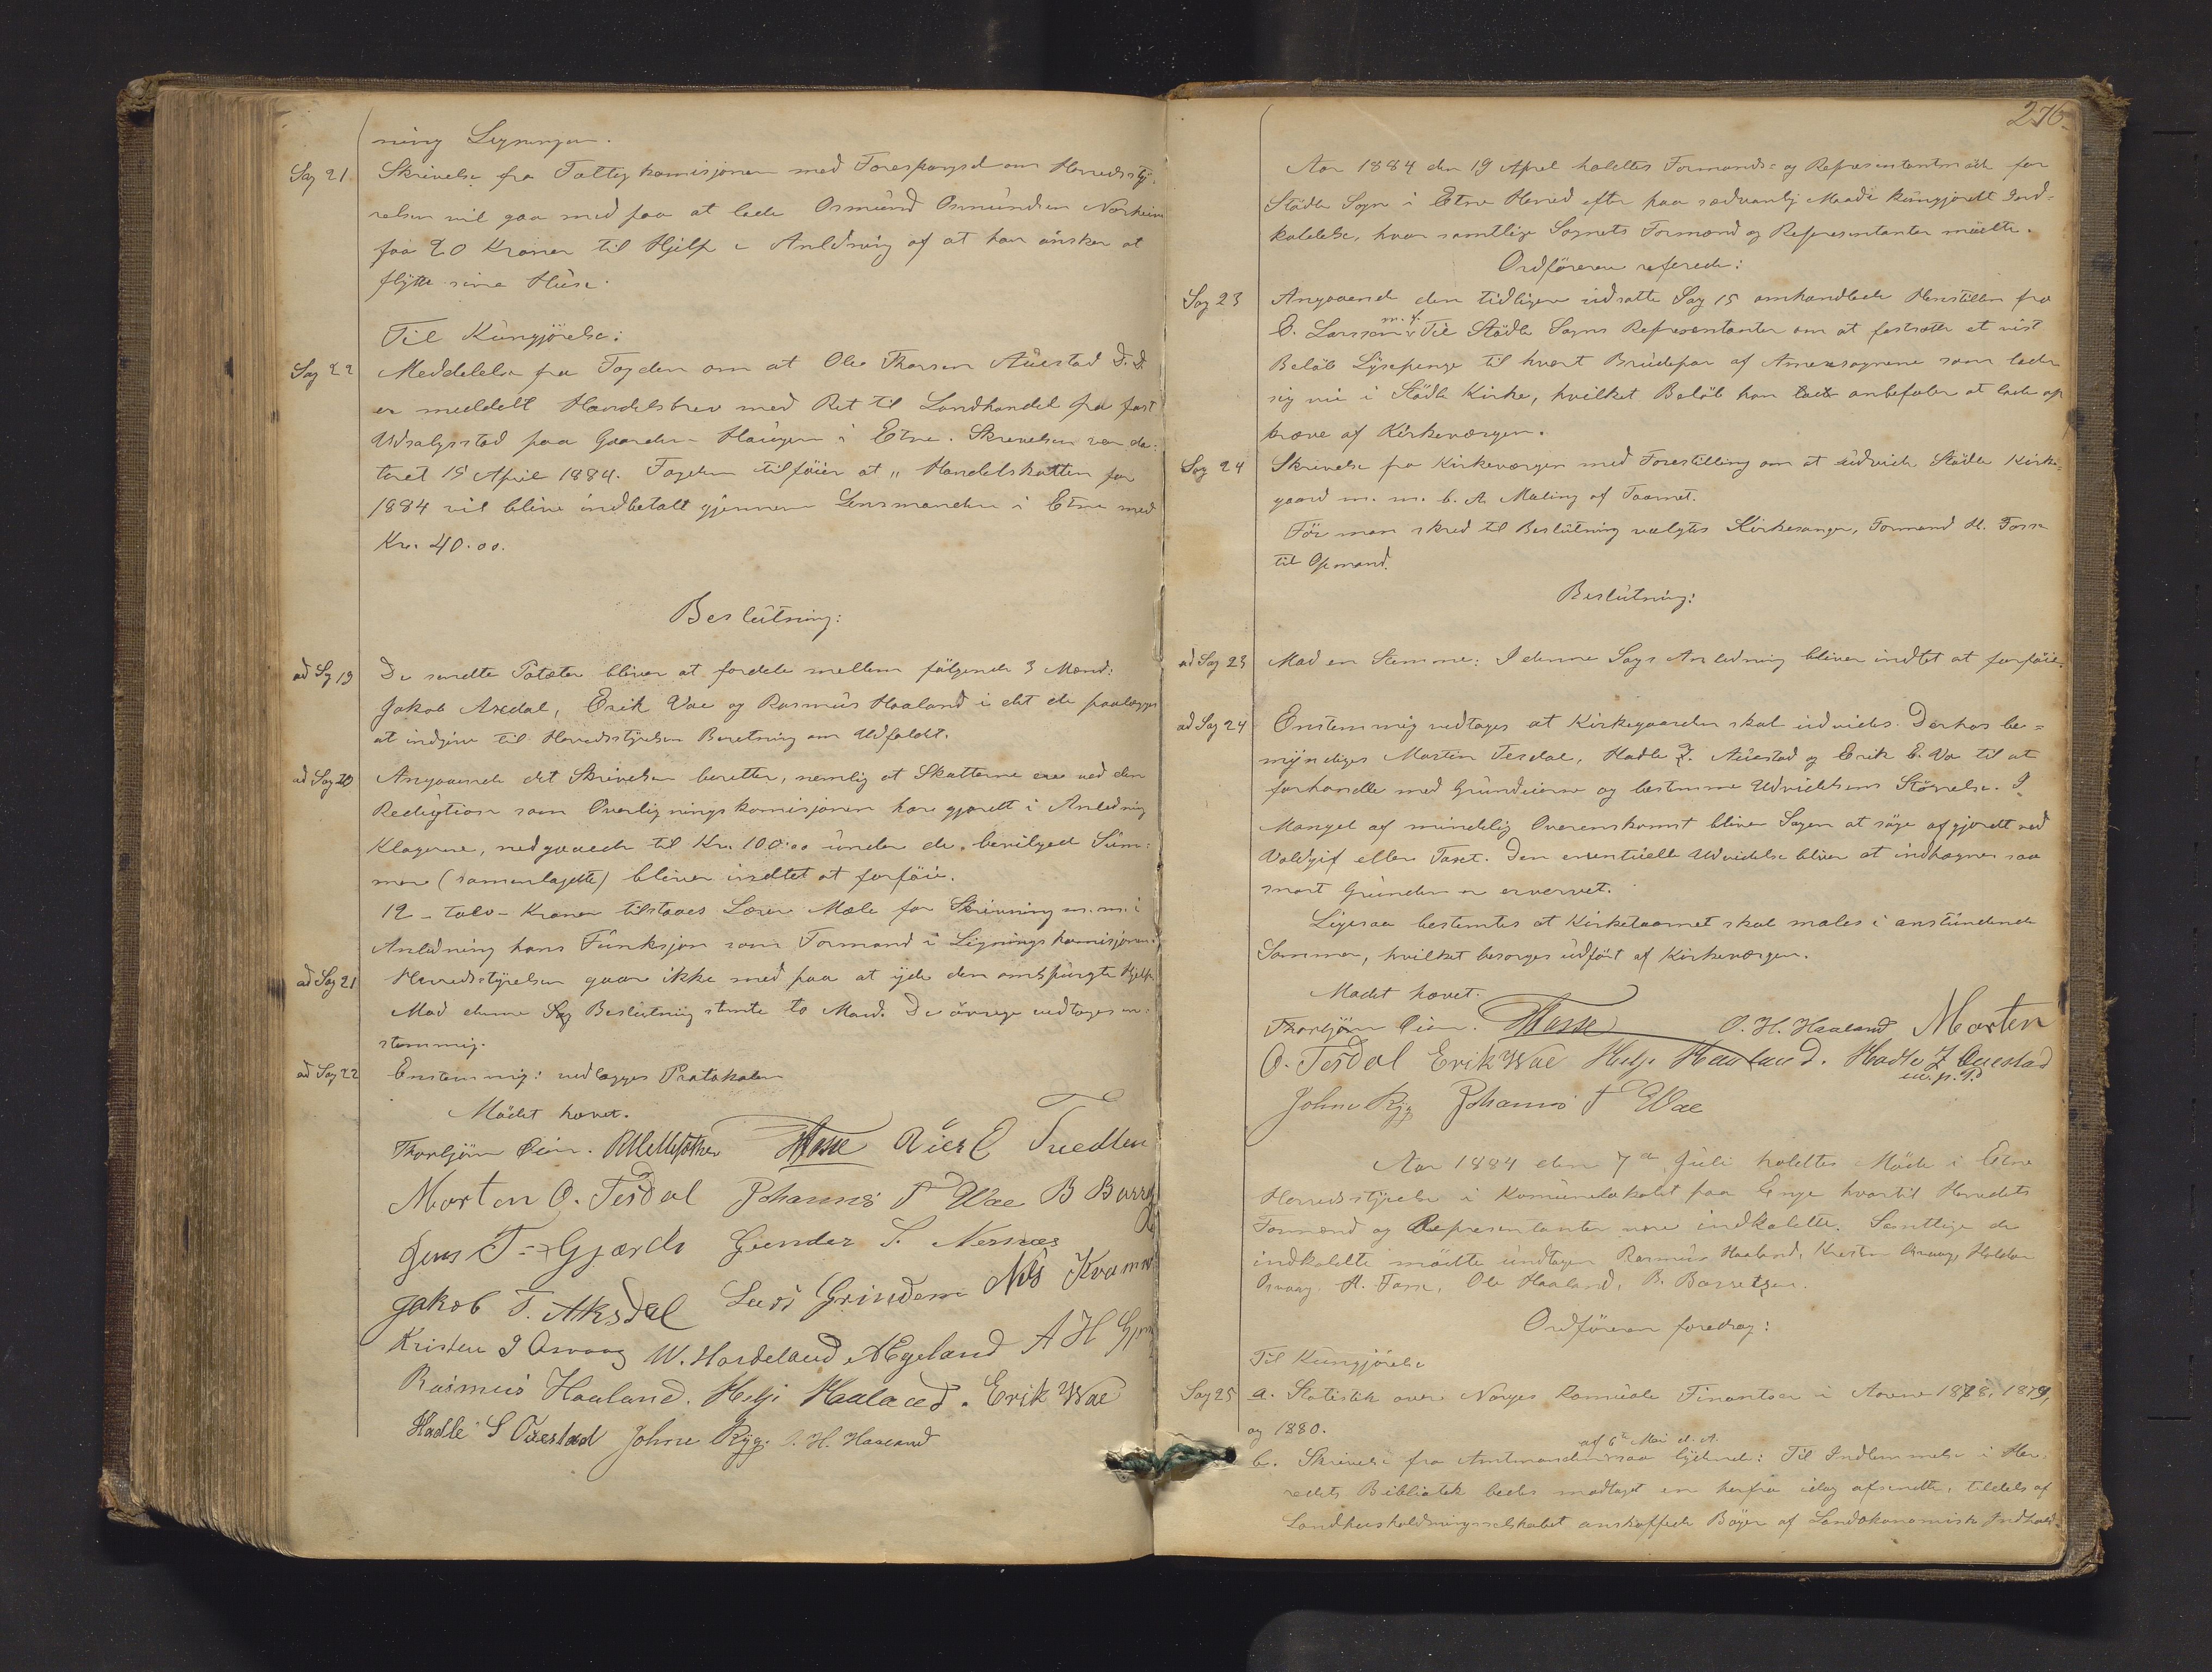 ning Ligningen.
Sag 21 Skrivelse fra Fattigkomisjonen med Forespørgsel om Herredssty-
relsen vil gaa med paa at lade Osmund Osmundsen Norheim
faa 20 Kroner til Hjelp i Anledning af at han ønsker at
flytte sine Huse.
Til Kungjørelse:
Sag 22 Meddelelse fra Fogden om at Ole Thorsen Auestad D.d.
er meddelt Handelsbrev med Ret til Landhandel fra fast
Udsalgsstad paa Gaarden Haugen i Etne. Skrivelsen var da-
teret 15 April 1884. Fogden tilføier at „Handelskatten for
1884 vil blive indbetalt gjennem Lensmanden i Etne med
Kr. 40.00.
Beslutning:
ad Sg 19 De sendte Poteter bliver at fordele mellem følgende 3 Mænd:
Jakob Axdal, Erik Vae og Rasmus Haaland i det de paalægges
at indgive til Herredsstyrelsen Beretning om Udfaldet.
ad Sag 20 Angaaende det Skrivelsen beretter, nemlig at Skatterne ere ved den
Reduktion som Overligningskomisjonen har gjordt i Anledning
Klagerne, nedgaaede til Kr. 100.00 under de bevilgede Sum-
mer (samenlagdte) bliver indtet at forføie.
12 - tolv - Kroner tilstaaes Lærer Mæle for Skrivning m.m. i
Anledning hans Funksjon som Formand i Ligningskomisjonen.
ad Sag 21 Herredsstyrelsen gaar ikke med paa at yde den omspurgte Hjelp.
Mod denne Sag Beslutning stemte to Mand. De øvrige vedtoges en-
stemmig.
ad Sag 22 Enstemmig: vedlægges Protokolen
Mødet hævet.
Thorbjørn Øien. HFosse Tvedten
Morten O. Tesdal Johannes T Wae B Barre
Jens T. Gjærde Gunder S. Nernæs
Jakob T. Aksdal Lars Grindem Nils Kvamme
Kristen J Osvaag W. Hardeland AEgeland A H
Rasmus Haaland. Helje Haaland. Erik Wae
Hadle S Øuestad Johne Ryg. O. H. Haaland
276
Aar 1884 den 19 April holdtes Formands- og Representantmøde for
Stødle Sogn i Etne Herred efter paa sædvanlig Maade kungjordt Ind-
kaldelse, hvor samtlige Sognets Formænd og Representanter mødte.
Ordføreren refererede:
Sag 23 Angaaende den tidligere udsatte Sag 15 omhandlede Henstillen fra
E. Larssen m. fl. Til Stødle Sogns Representanter om at fastsætte et vist
Beløb Lysepenge til hvert Brudepar af Annexsognene som lader
sig vie i Stødle Kirke, hvilket Beløb han anbefaler at lade op
kræve af Kirkeværgen.
Sag 24 Skrivelse fra Kirkeværgen med Forestilling om at udvide Stødle Kirke-
gaard m. m. b. A. Maling af Taarnet.
Før man skred til Beslutning valgtes Kirkesanger, Formand H. Fosse
til Opmand.
Beslutning:
ad Sag 23 Mod en Stemme: I denne Sags Anledning bliver indtet at forføie.
ad Sag 24 Enstemmig vedtages at Kirkegaarden skal udvides. Derhos be-
myndiges Morten Tesdal, Hadle S. Auestad og Erik E. Va til at
forhandle med Grundeierne og bestemme Udvidelsens Størrelse. I
Mangel af mindelig Overenskomst bliver Sagen at søge afgjordt ved
Voldgift eller Taxt. Den eventuelle Udvidelse bliver at indhegne saa
snart Grunden er ervervet.
Ligesaa bestemtes at Kirketaarnet skal males i anstundende
Sommer, hvilket besørges udført af Kirkeværgen.
Mødet hævet.
Thorbjørn Øien. HFosse O. H. Haaland Morten
O. Tesdal Erik Wae Helje Haaland. Hadle S Øuestad
m. p. P.
Johne Ryg Johannes T Wae
Aar 1884 den 7de Juli holdtes Møde i Etne
Herredsstyrelse i Komunelokalet paa Enge hvortil Herredets
Formænd og Representanter vare indkaldte. Samtlige de
indkaldte mødte undtagen Rasmus Haaland, Kristen Osvaag, Haldor
Osvaag, H. Fosse, Ole Haaland, B. Barretzen.
Ordføreren foredrog:
Til Kungjørelse
Sag 25 a. Statistik over Norges Komunale Finantser i Aarene 1878, 1879,
og 1880.
b. Skrivelse fra Amtmanden af 6te Mai d. A. saa lydende: Til Indlemmelse i Her-
redets Bibliotek bedes modtaget en herfra idag afsendte, tildels af
Landhusholdningsselskabet anskaffede Bøger af Landøkonomisk Indhold